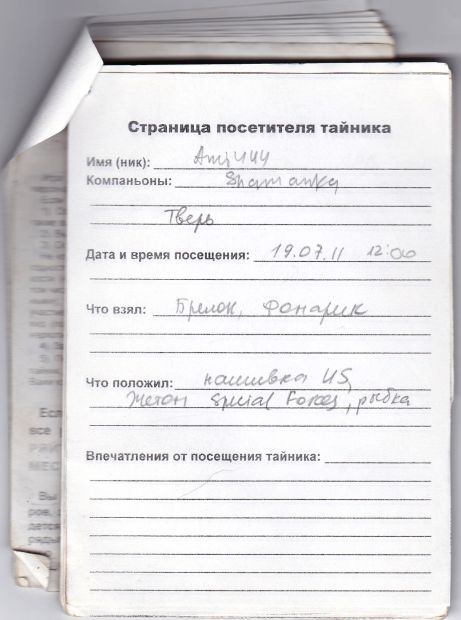 Страница посетителя тайника
Имя (ник):
Компаньоны: Shamanka
Тверь
Дата и время посещения: 19.07.11 12:00
Что взял: Брелок, Фонарик
Что положил: нашивка US,
Жетон Special Forces, рыбка
Впечатления от посещения тайника: